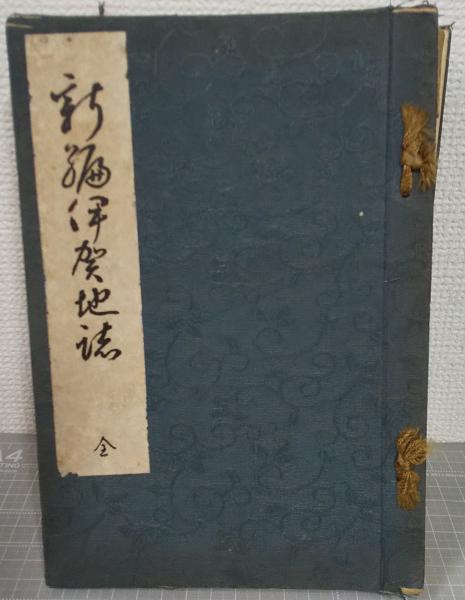 新編伊賀地誌
全
A4